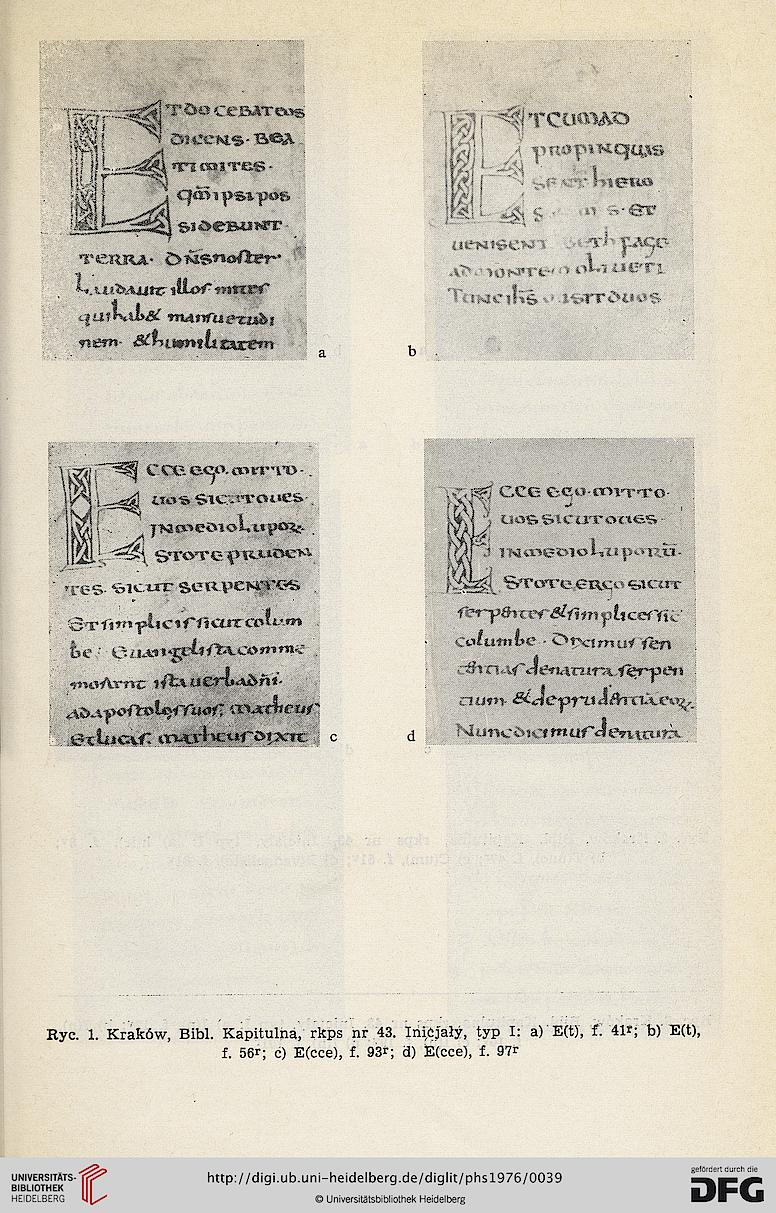 ET DOCEBAT EOS
DICENS · BEA
TI MITES ·
qm̅ ipsi pos
SIDEBUNT
TERRA · DN̅S noster
Laudauit illos mites
qui hab& mansuetudi
nem · & humilitatem
a
ET CUM AD
propinquas
SENT hiero
S ET
UENISENT BETHFAGE
AD MONTEM OLIUETI
TUNC IHS̅ MISIT DUOS
b
ECCE EGO MITTO
UOS SICUT OUES
IN MEDIO Lupor
ESTOTE PRUDEN
TES · SICUT SERPENTES
Et simplicis sicut colum
be · Euangelista comme
morant ista uerba dn̅i ·
Ad apostolos suos · matheus
Et lucas · matheus dixit
c
ECCE EGO MITTO
UOS SICUT OUES
IN MEDIO LUPORU̅ ·
ESTOTE ERGO SICUT
serpentes & simplices sic
columbe · Diximus sen
tentias de natura serpen
tium · & de prudentia eor
Nunc dicimus de natura
d
Ryc. 1. Kraków, Bibl. Kapitulna, rkps nr 43. Inicjały, typ I: a) E(t), f. 41r; b) E(t),
f. 56r; c) E(cce), f. 93r; d) E(cce), f. 97r
UNIVERSITÄTS-
BIBLIOTHEK
HEIDELBERG
http://digi.ub.uni-heidelberg.de/diglit/phs1976/0039
© Universitätsbibliothek Heidelberg
gefördert durch die
DFG